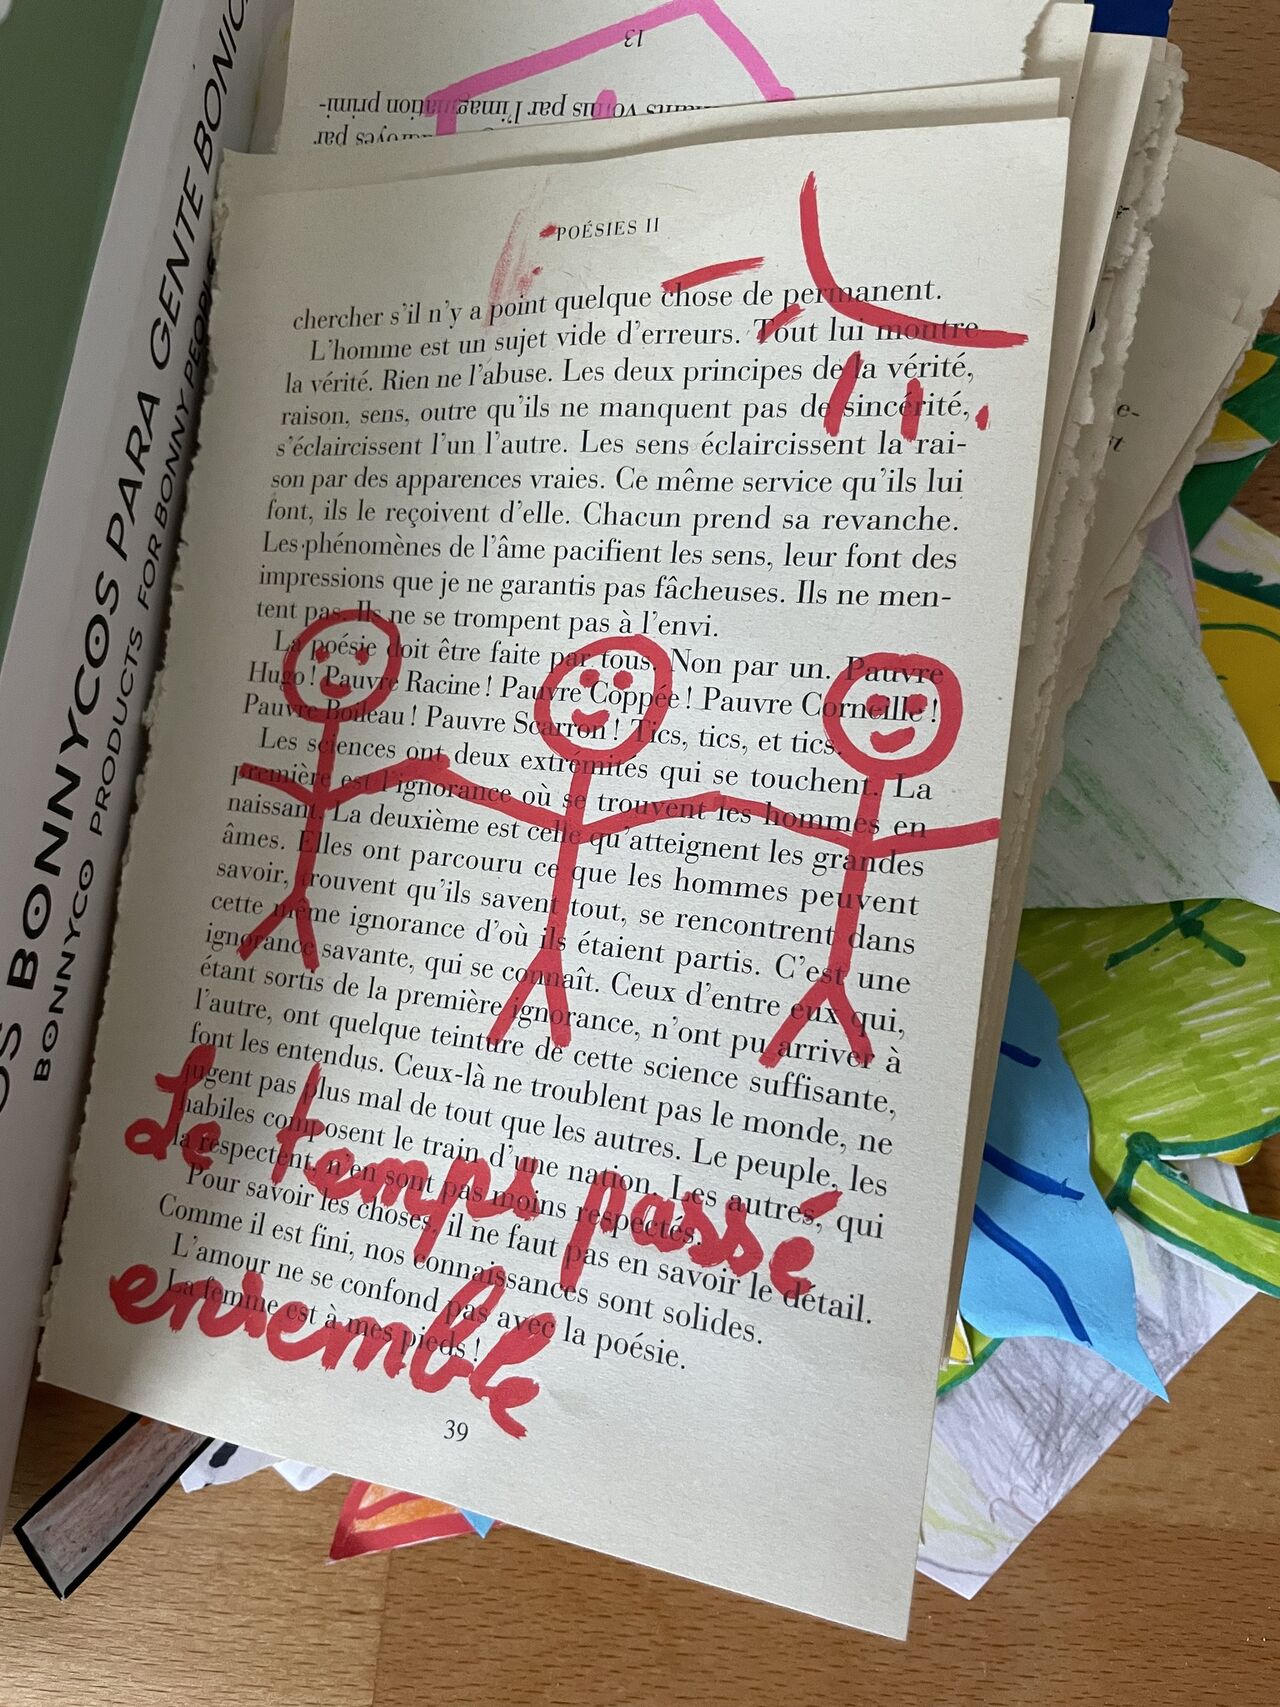 OS BONNYCOS PARA GENTE BONIC
BONNYCO PRODUCTS FOR BONNY PEOPLE
13
par l'imagination primi-
par
POÉSIES II
chercher s'il n'y a point quelque chose de permanent.
L'homme est un sujet vide d'erreurs. Tout lui montre
la vérité. Rien ne l'abuse. Les deux principes de la vérité,
raison, sens, outre qu'ils ne manquent pas de sincérité,
s'éclaircissent l'un l'autre. Les sens éclaircissent la rai-
son par des apparences vraies. Ce même service qu'ils lui
font, ils le reçoivent d'elle. Chacun prend sa revanche.
Les phénomènes de l'âme pacifient les sens, leur font des
impressions que je ne garantis pas fâcheuses. Ils ne men-
tent pas. Ils ne se trompent pas à l'envi.
La poésie doit être faite par tous. Non par un. Pauvre
Hugo! Pauvre Racine! Pauvre Coppée! Pauvre Corneille!
Pauvre Boileau! Pauvre Scarron! Tics, tics, et tics.
Les sciences ont deux extrémités qui se touchent. La
première est l'ignorance où se trouvent les hommes en
naissant. La deuxième est celle qu'atteignent les grandes
âmes. Elles ont parcouru ce que les hommes peuvent
savoir, trouvent qu'ils savent tout, se rencontrent dans
cette même ignorance d'où ils étaient partis. C'est une
ignorance savante, qui se connaît. Ceux d'entre eux qui,
étant sortis de la première ignorance, n'ont pu arriver à
l'autre, ont quelque teinture de cette science suffisante,
font les entendus. Ceux-là ne troublent pas le monde, ne
jugent pas plus mal de tout que les autres. Le peuple, les
habiles composent le train d'une nation. Les autres, qui
la respectent, n'en sont pas moins respectés.
Pour savoir les choses, il ne faut pas en savoir le détail.
Comme il est fini, nos connaissances sont solides.
L'amour ne se confond pas avec la poésie.
La femme est à mes pieds!
Le temps passé
ensemble
39